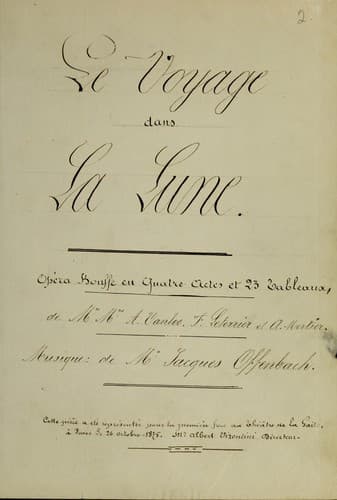 2
Le Voyage
dans
La Lune.
Opéra Bouffe en Quatre Actes et 23 Tableaux,
de Mrs Mrs A. Vanloo, F. Leterrier et A. Mortier.
Musique: de Mr Jacques Offenbach.
Cette pièce a été représentée pour la première fois au théâtre de la Gaîté,
à Paris le 26 octobre 1875. Mr Albert Vizentini Directeur.